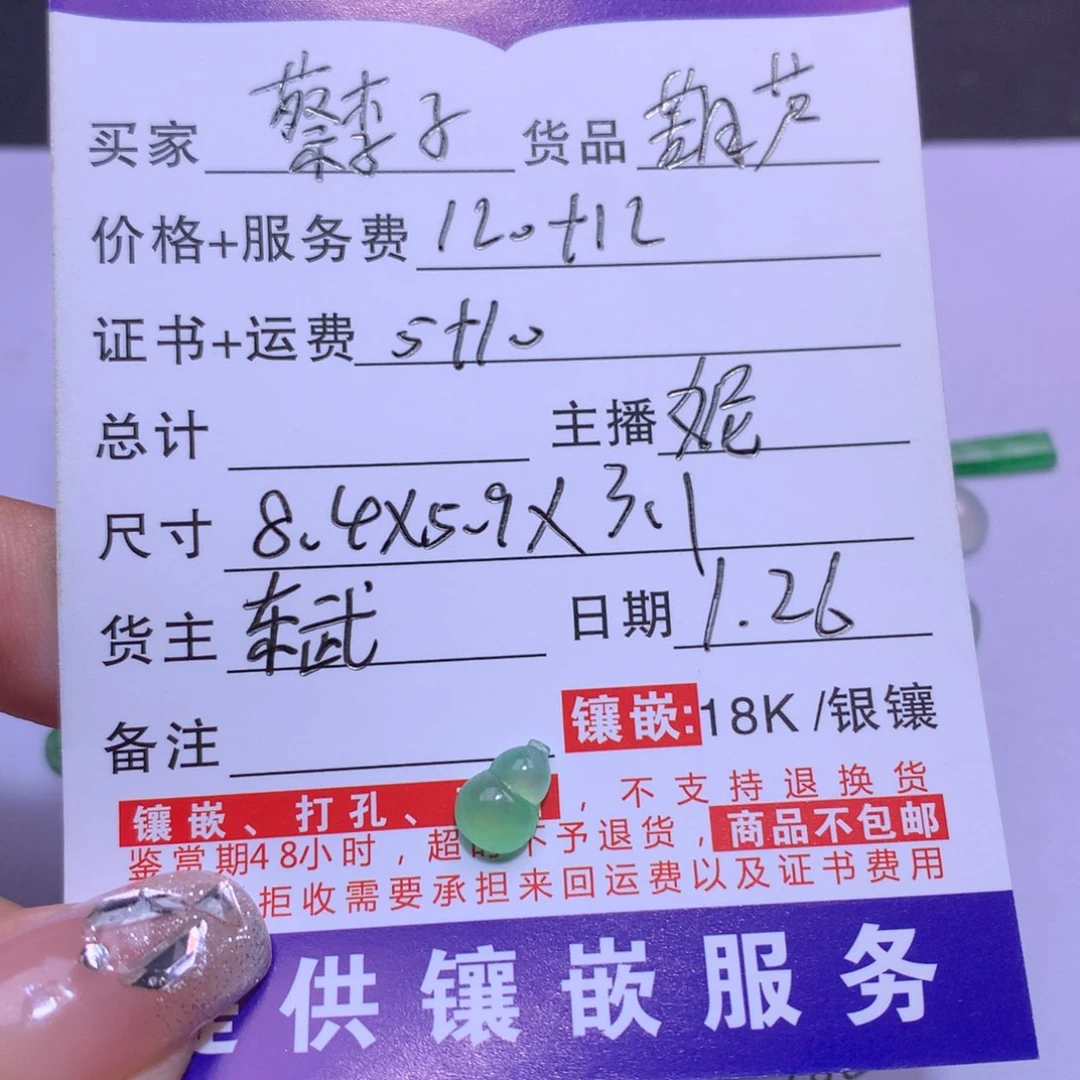 买家 蔡李子 货品 葫芦
价格+服务费 120+12
证书+运费 5+10
总计 主播 妮
尺寸 8.4X5.9X3.1
货主 东武 日期 1.26
备注 镶嵌:18K/银镶
镶嵌、打孔、 ,不支持退换货
鉴赏期48小时,超时不予退货,商品不包邮
拒收需要承担来回运费以及证书费用
供镶嵌服务